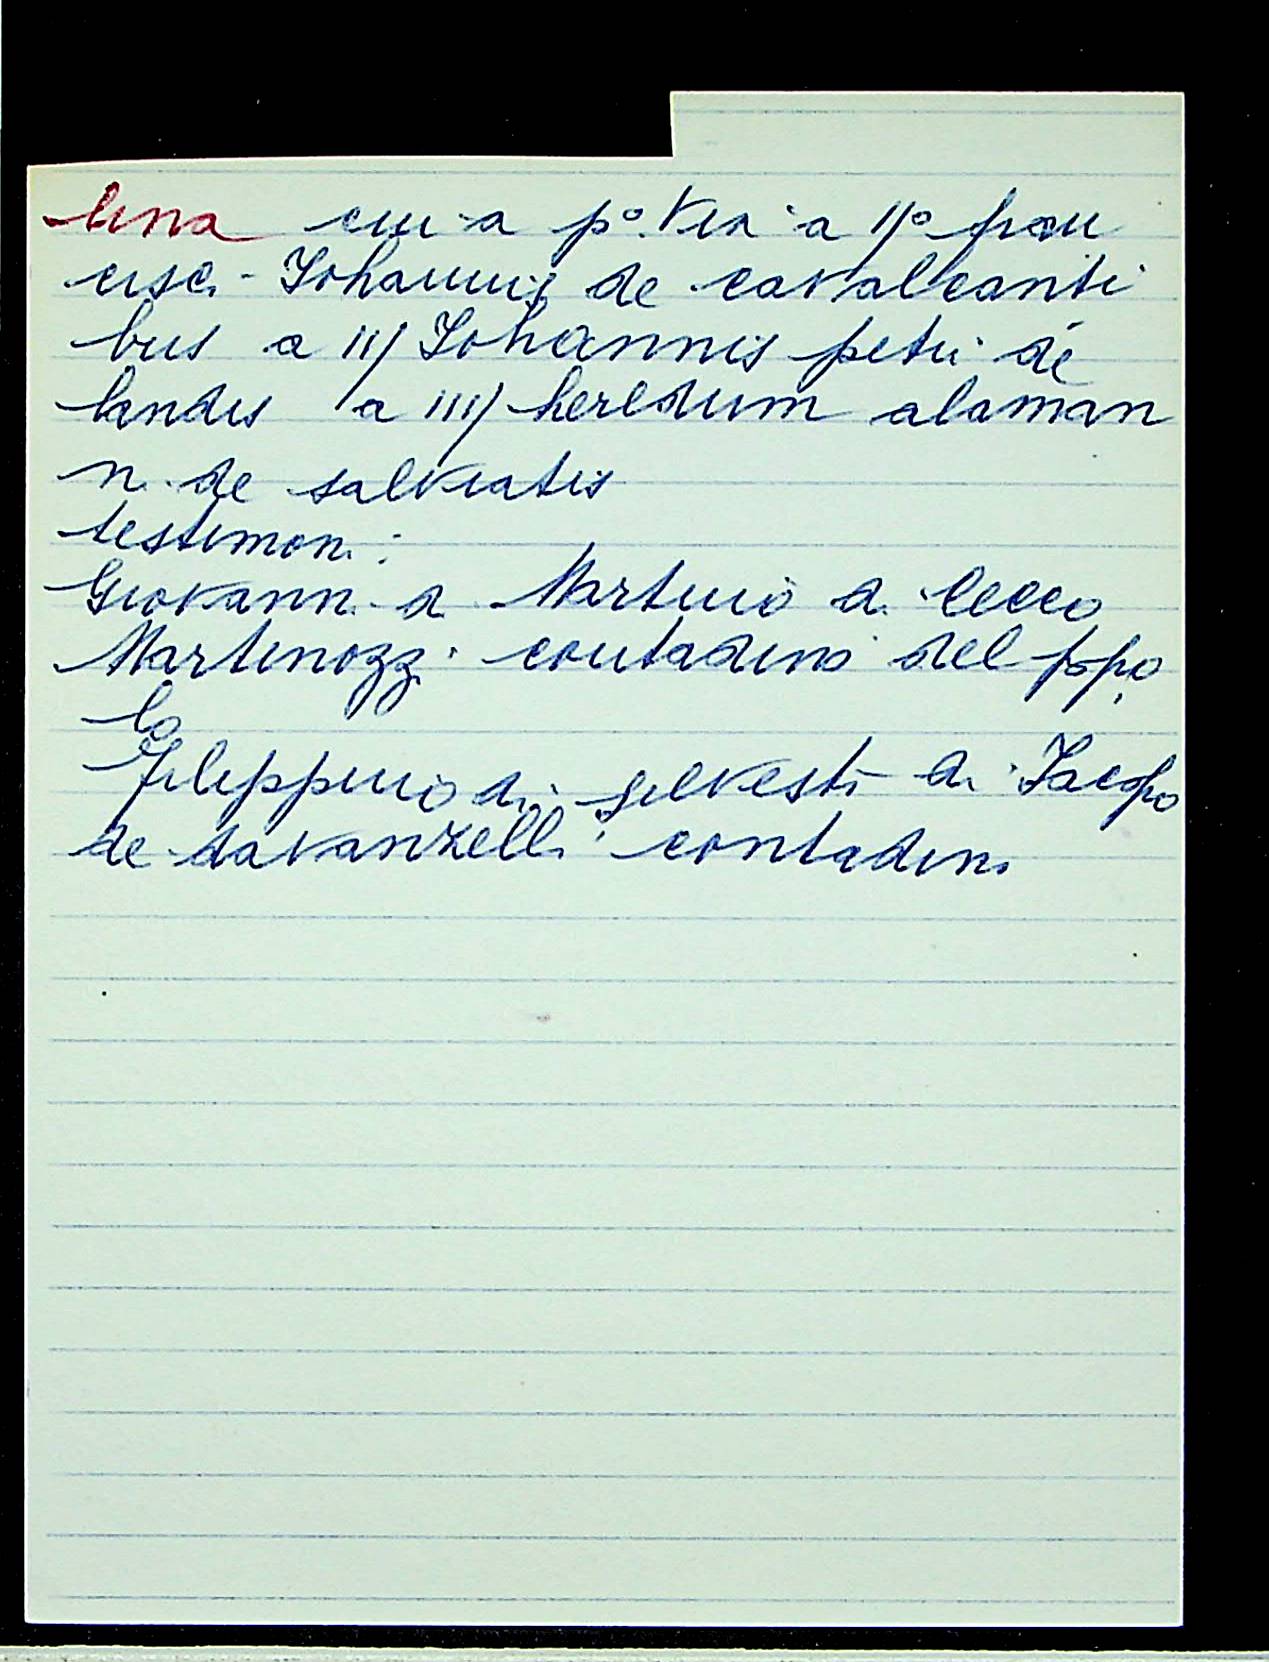 lina cui a p° via a II° fran
cisci Johannis de cavalcanti
bus a III Johannis petri de
landis a IIII heredum alaman
ni de salviatis
testimoni:
Giovanni di Martino di Cecco
Martinozzi contadino del popo
lo
Filippino di Silvestro di Jacopo
de davanzelli contadini